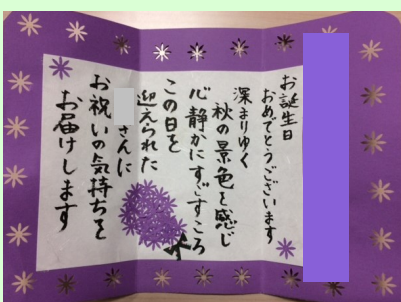 お誕生日
おめでとうございます
深まりゆく
秋の景色を感じ
心静かにすごすころ
この日を
迎えられた
さんに
お祝いの気持ちを
お届けします